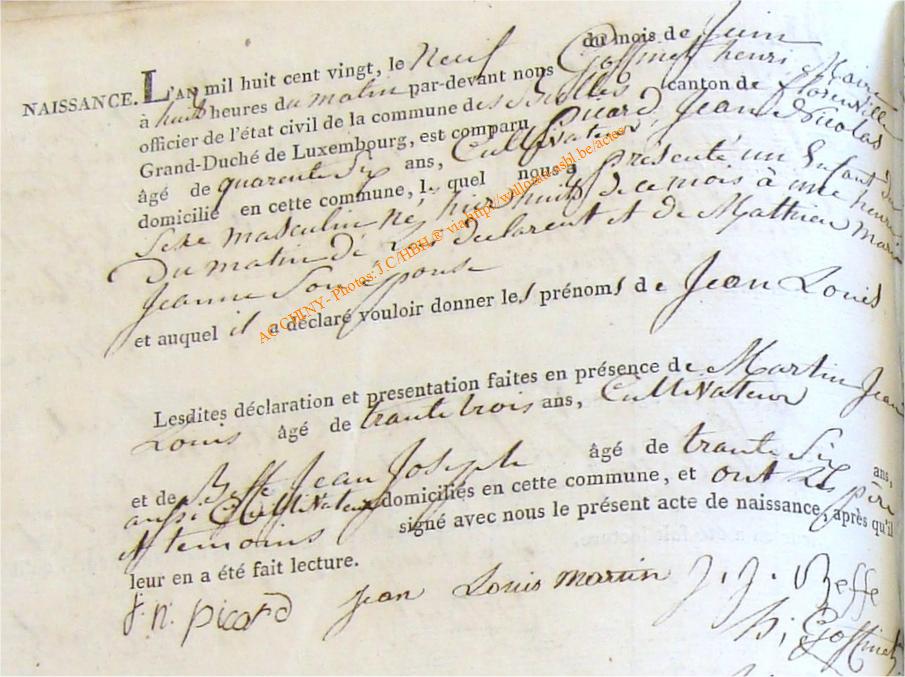 NAISSANCE. L'AN mil huit cent vingt, le Neuf du mois de Juin
à huit heures du matin par-devant nous Goffinet henri Maire
officier de l'état civil de la commune des Bulles canton de florenville
Grand-Duché de Luxembourg, est comparu Picard Jean Nicolas
âgé de quarente Six ans, CultiVateur,
domicilié en cette commune, lequel nous a présenté un Enfant du
Sexe masculin né hier huit de ce mois à une heure
Du matin de Luy declarent et de Mathieu marie
Jeanne Son Epouse
et auquel il a déclaré vouloir donner les prénoms de Jean Louis
Lesdites déclaration et presentation faites en présence de Martin Jean
Louis âgé de trante trois ans, CultiVateur
et de Beffe Jean Joseph âgé de trante Six ans,
aussi CultiVateur domiciliés en cette commune, et ont Les père
et temoins signé avec nous le présent acte de naissance, après qu'il
leur en a été fait lecture.
j. n. picard jean Louis martin J. J. Beffe
h. Goffinet
AC CHINY - Photos: J.C/HBH © via http://wallonica.asbl.be/actes